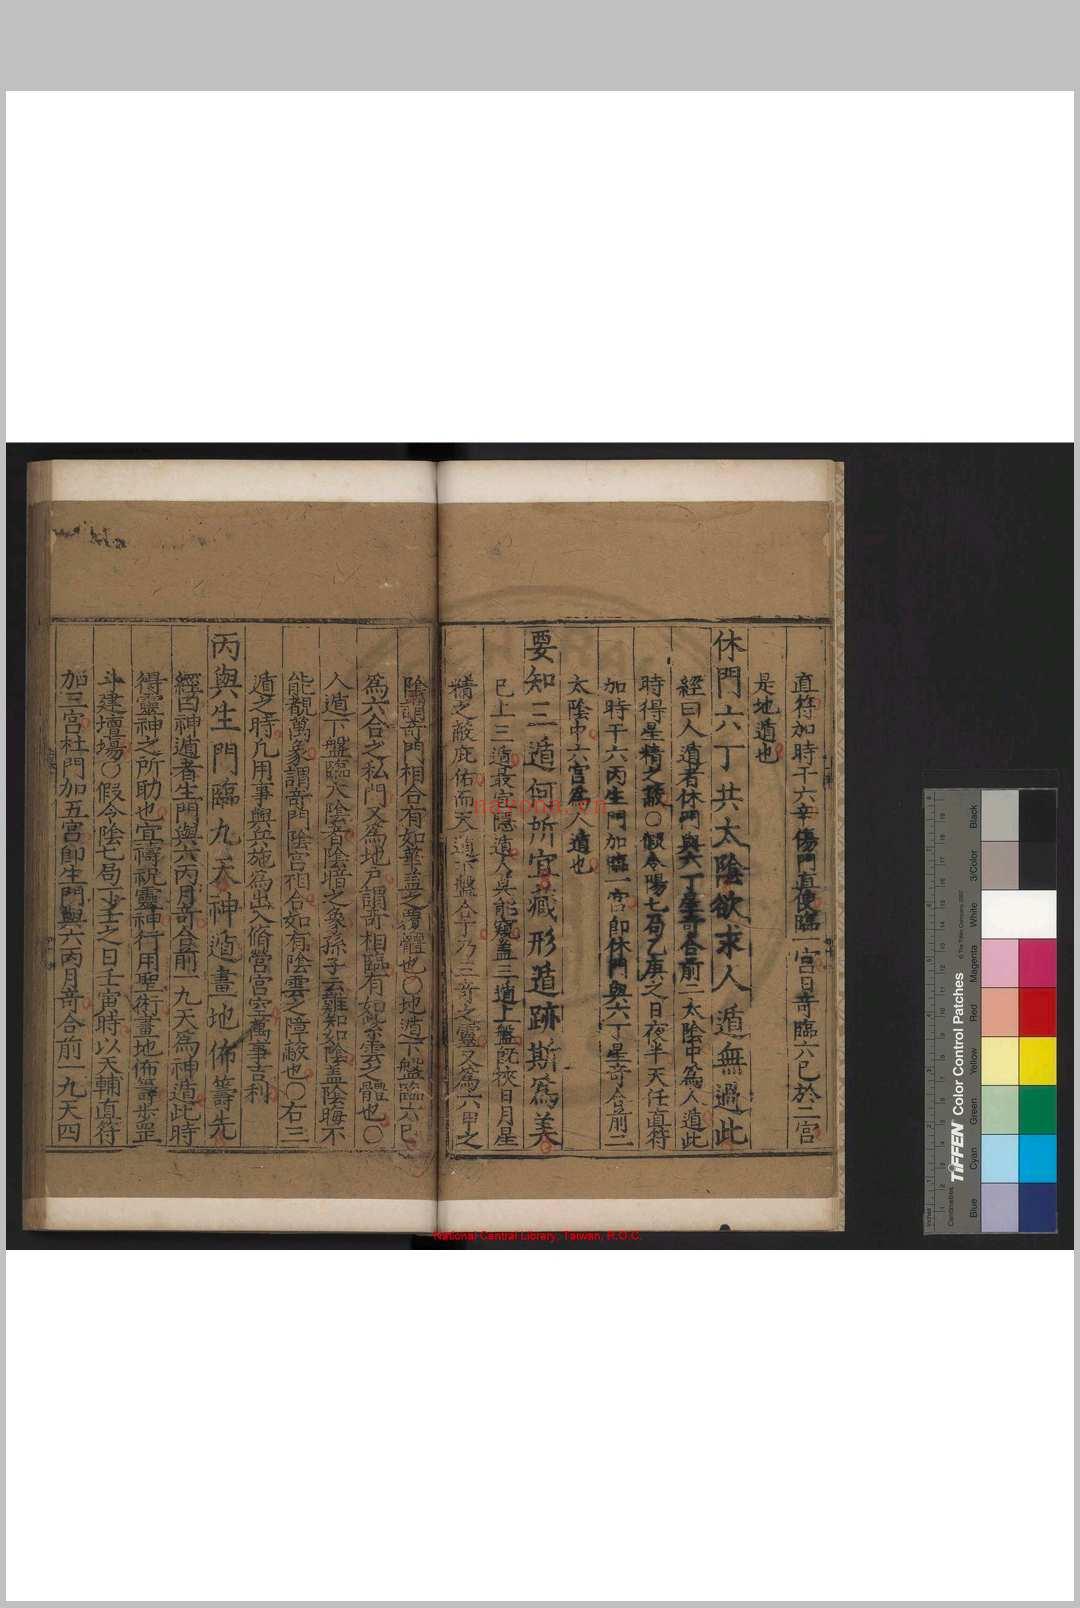 直符加時干六辛傷門直使臨一宮日奇臨六己於二宮
是地遁也
休門六丁共太陰欲求人遁無過此
經曰人遁者休門與六丁星奇合前二太陰中為人遁此
時得星精之蔽○假令陽七局乙庚之日夜半天任直符
加時干六丙生門加臨一宮即休門與六丁星奇合前二
太陰中六宮為人遁也
要知三遁何所宜藏形遁跡斯為美
已上三遁最宜隱遁人莫能窺蓋三遁上盤既挾日月星
精之蔽庇佑而天遁下盤合丁乃三奇之靈又為六甲之
陰謂奇門相合有如華盖之覆體也○地遁下盤臨六己
為六合之私門又為地戶謂奇相臨有如紫雲之體也○
人遁下盤臨太陰者陰暗之象孫子云難知如陰盖陰晦不
能覩萬象謂奇門陰宮相合如有陰雲之障蔽也○右三
遁之時凡用事與兵施為出入脩營宮室萬事吉利
丙與生門臨九天神遁畫地佈籌先
經曰神遁者生門與六丙月奇合前一九天為神遁此時
得靈神之所助也宜禱祝靈神行用聖術畫地佈籌步罡
斗建壇場○假令陰七局丁壬之日壬寅時以天輔直符
加三宮杜門加五宮即生門與六丙月奇合前一九天四
nayona.cn
National Central Library, Taiwan, R.O.C.
TIFFEN Color Control Patches
© The Tiffen Company, 2007
Blue
Cyan
Green
Yellow
Red
Magenta
White
3/Color
Black
Inches
Centimetres